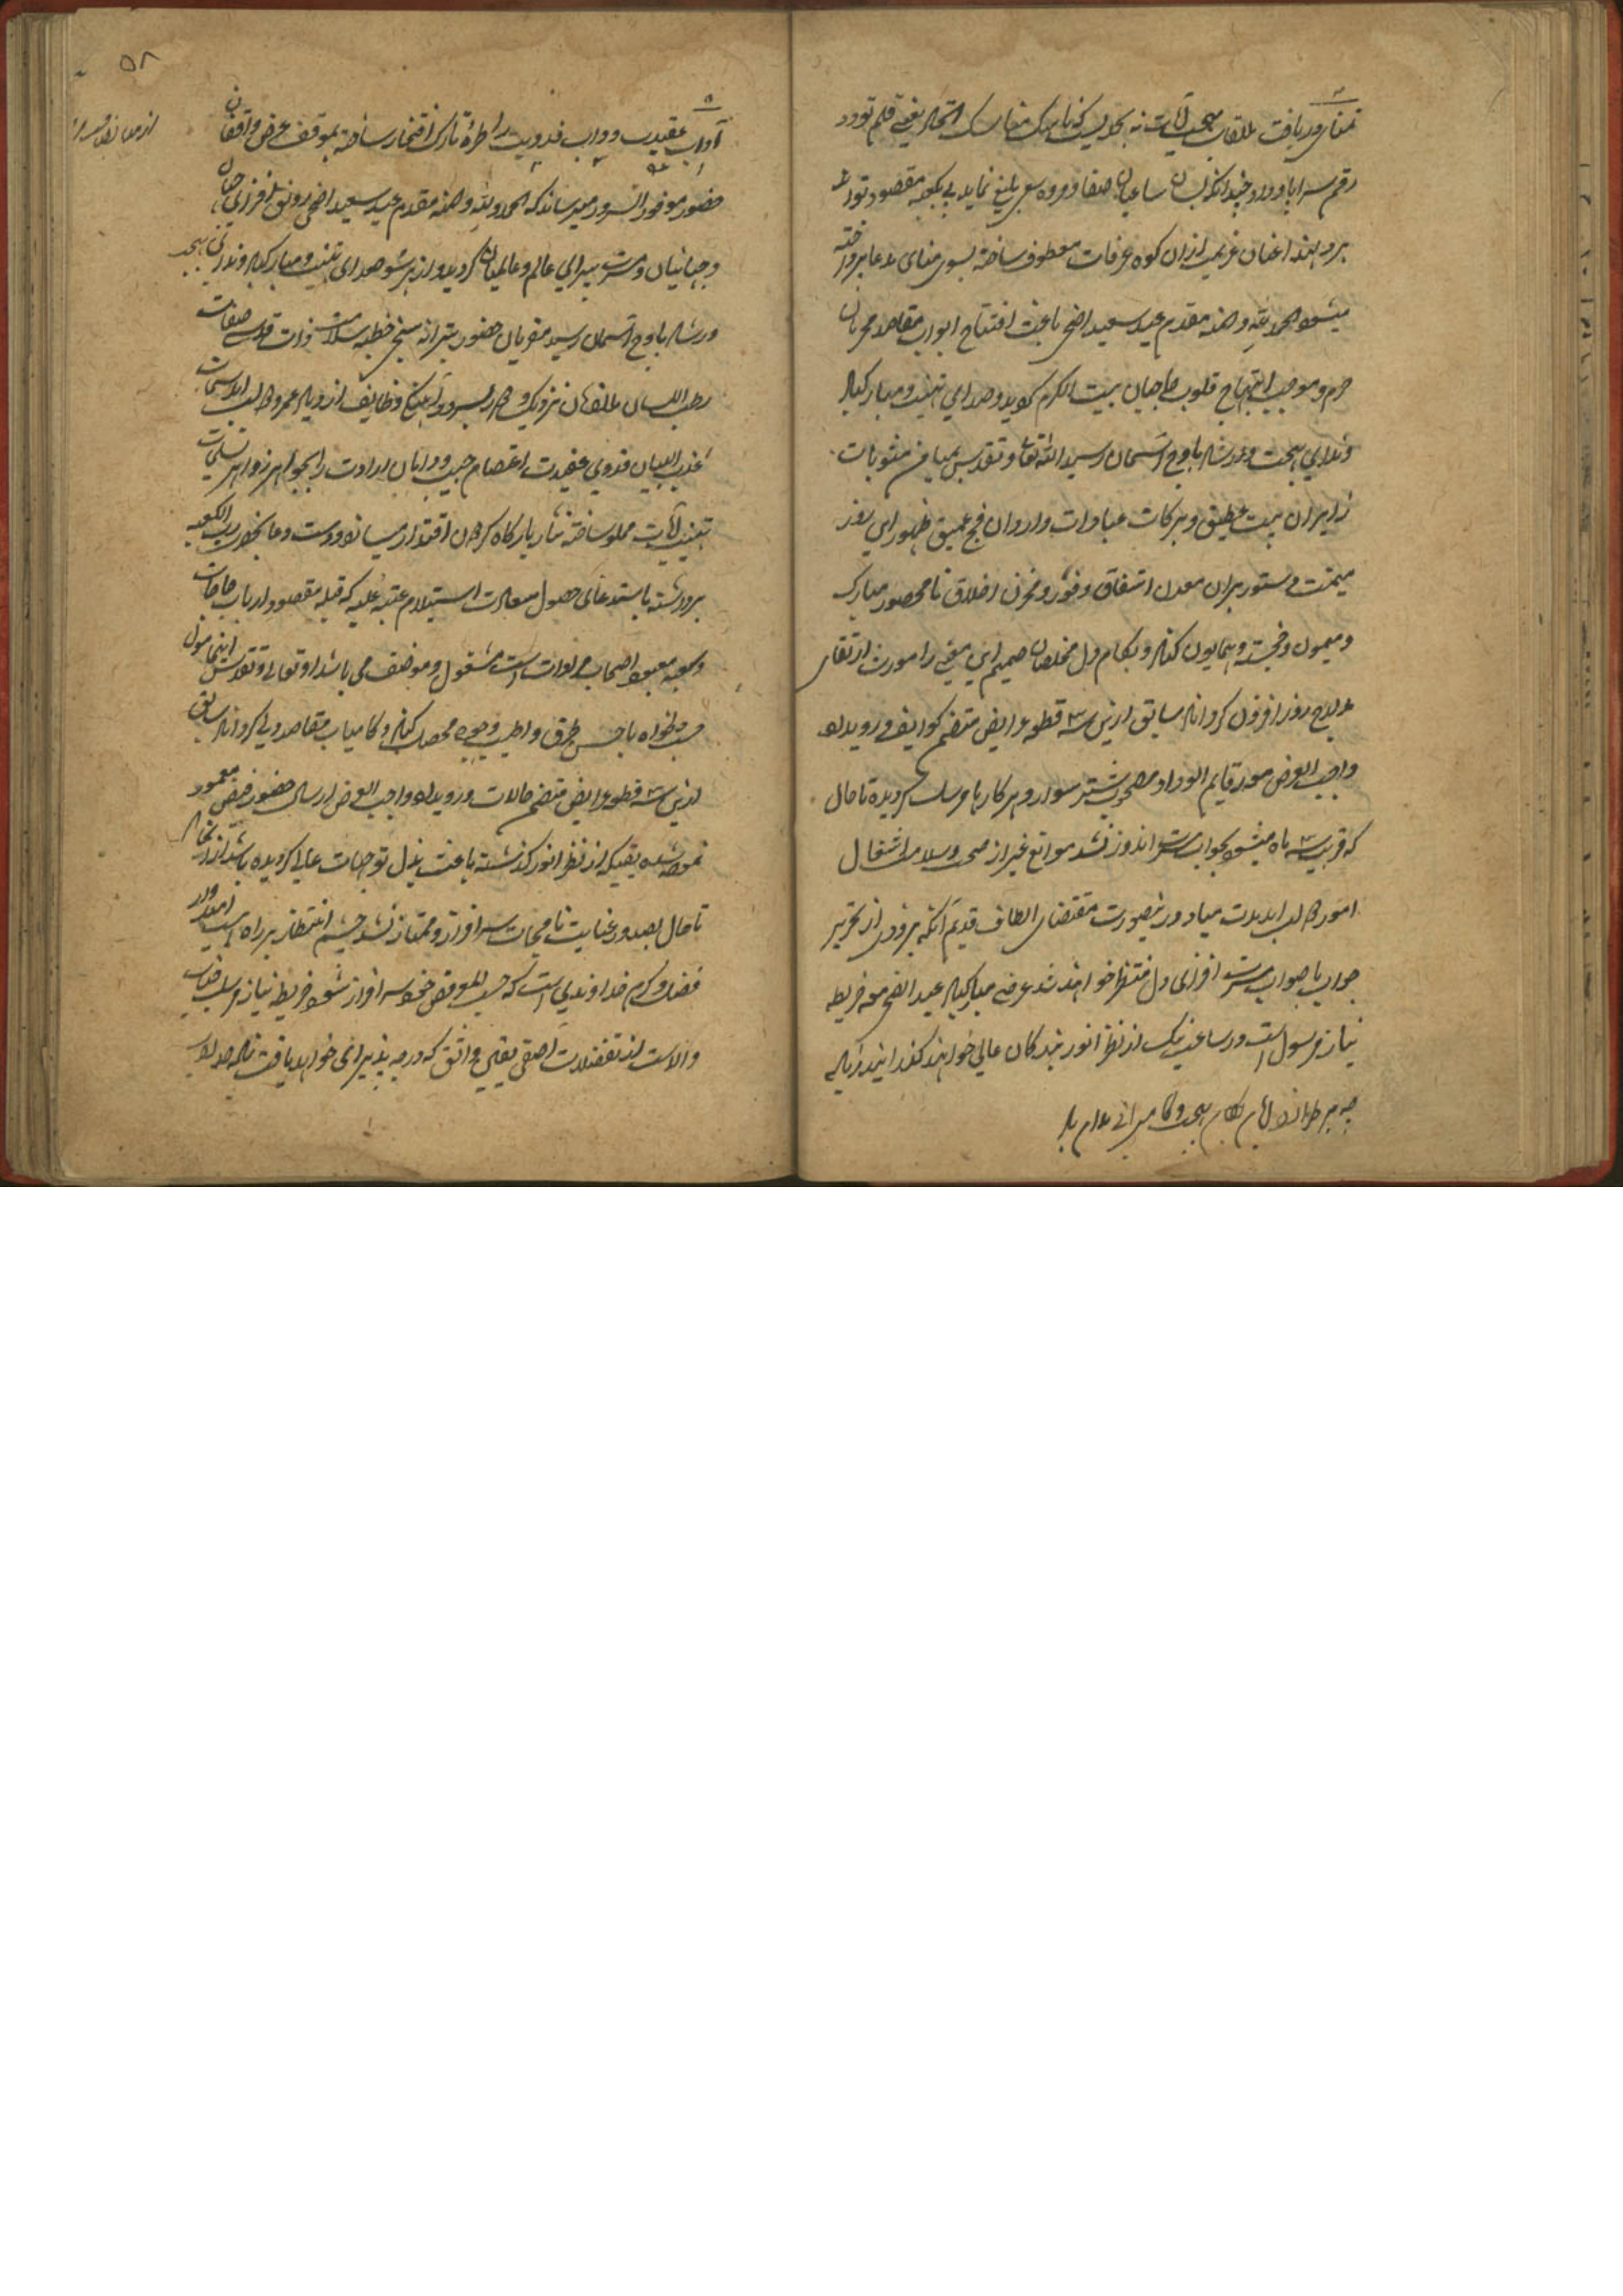 تمنای دریافت ملاقات بهجت آیات نه بحدیست که ناسک مناسک اتحاد یعنی قلم تودد
رقم سراپا ورد چندانکه بسان ساعیان صفا و مروه سعی بلیغ نماید پی بکعبه مقصود تواند
برد لهذا عنان عزیمت ازان کوه عرفات معطوف ساخته بسوی منای مدعا پرداخته
میشود الحمد لله و المنه مقدم عید سعید اضحی باعث افتتاح ابواب مقاصد محرمان
حرم و موجب ابتهاج قلوب حاجیان بیت الکرم گردید و صدای تهنیت و مبارکباد
و ندای بهجت و ارشاد باوج آسمان رسید الله تعالی و تقدس بمیامن مثوبات
زایران بیت عتیق و برکات عبادات واردان فج عمیق ظهور این روز
میمنت دستور بران معدن اشفاق وفور و مخزن اخلاق نامحصور مبارک
و میمون و خجسته و همایون کناد و بکام دل مخلصان صمیم این معنی را مورث ارتقای
مدارج روز افزون گرداناد سابق ازین سه قطعه عرایض متضمن کوایف و رویداد
واجب العرض مع رقایم الوداد مصحوب شتر سوار و هرکارها مرسل گردیده تا حال
که قریب سه ماه میشود بجواب مسرت اندوز نشد موانع غیر از صحت و سلامت اشتغال
امور طالب ابدیت مباد در ینصورت مقتضای الطاف قدیم آنکه بزودی از تحریر
جواب با صواب مسرت افزای دل منتظر خواهند شد عرضی مبارکباد عید الضحی مع خریطه
نیاز مرسول است در ساعت نیک از نظر انور بندگان عالی خواهند گذرانید زیاده
چه بر طرازد ایام بکام بهجت و کامرانی مدام باد
۵۸
آداب عقیدت و داب فدویت را طره تارک افتخار ساخته بموقف عرض واقفان
حضور موفور السرور میرساند که الحمد لله و المنه مقدم عید سعید اضحی رونق افزای جهان
و جهانیان و مسرت پیرای عالم و عالمیان گردید و از هر سو صدای تهنیت و مبارکباد و ندای بهجت
و ارشاد باوج آسمان رسید مقربان حضور بترانه سنجی خطبه سلامت ذات قدسی صفات
رطب اللسان ملتفان نزدیک و دور بسرود آهنگ وظایف ازدیاد عمر و دولت ابد سمات
عذب البیان فدوی عقیدت اعتصام جیب و دامان ارادت را بجواهر زواهر تسلیمات
تهنیت آیات مملو ساخته نثار بارگاه گردون اقتدار میساند و دست دعا بحضور رب الکعبه
برداشته باستدعای حصول سعادت استیلام عتبه علیه که قبله مقصود ارباب حاجات
و کعبه معبود اصحاب مرادات است مشغول و موظف می باشد او تعالی و تقدس اینمامول
حسب دلخواه باحسن طرق و اطیب وجوه محصل کناد و کامیاب مقاصد دلی گرداناد سابق
ازین سه قطعه عرایض متضمن حالات و رویداد واجب العرض ارسال حضور فیض معمور
نموده شده یقینکه از نظر انور گذشته باعث بذل توجهات عالی گردیده باشد از انجا
تا حال بصدور عنایت نامجات سرافراز و ممتاز نشد چشم انتظار بر راه است امیدوار
فضل و کرم خداوندی است که حسب المعروض خود سرافراز شود خریطه نیاز مرسل جناب
والاست از تفضلات آصفی یقین واثق که درجه پذیرائی خواهد یافت